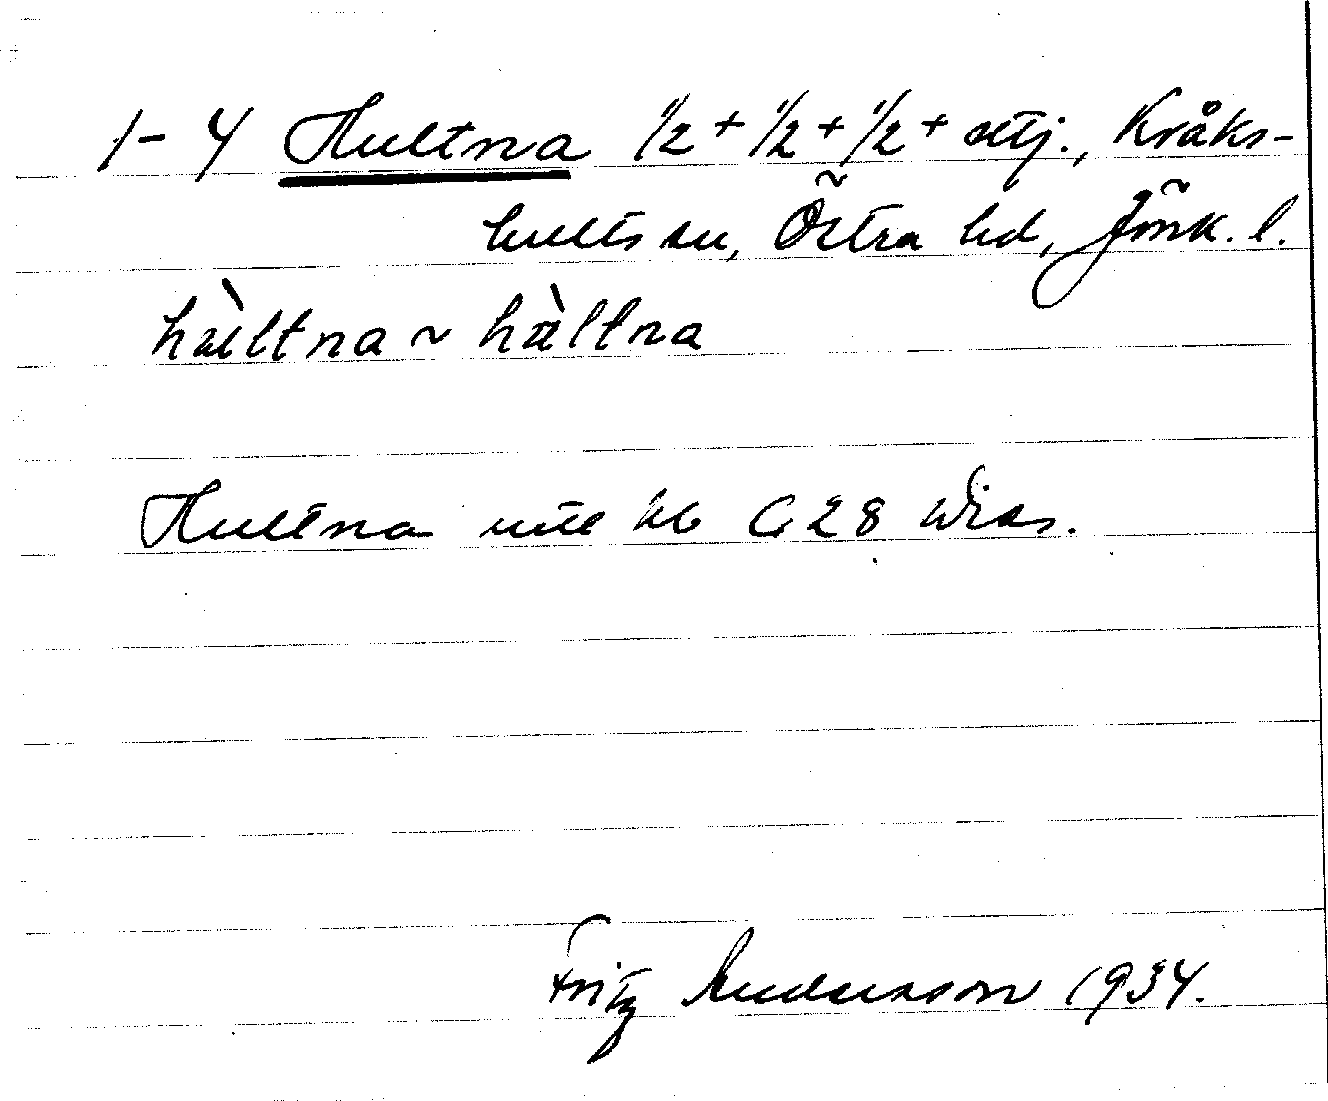 1-4 Hultna 1/2 + 1/2 + 1/2 + utj., Kråks-
hults sn, Östra hd, Jönk. l.
hùltna ~ hàltna
Hultna utl kb G 28 Wiks.
Fritz Andersson 1934.